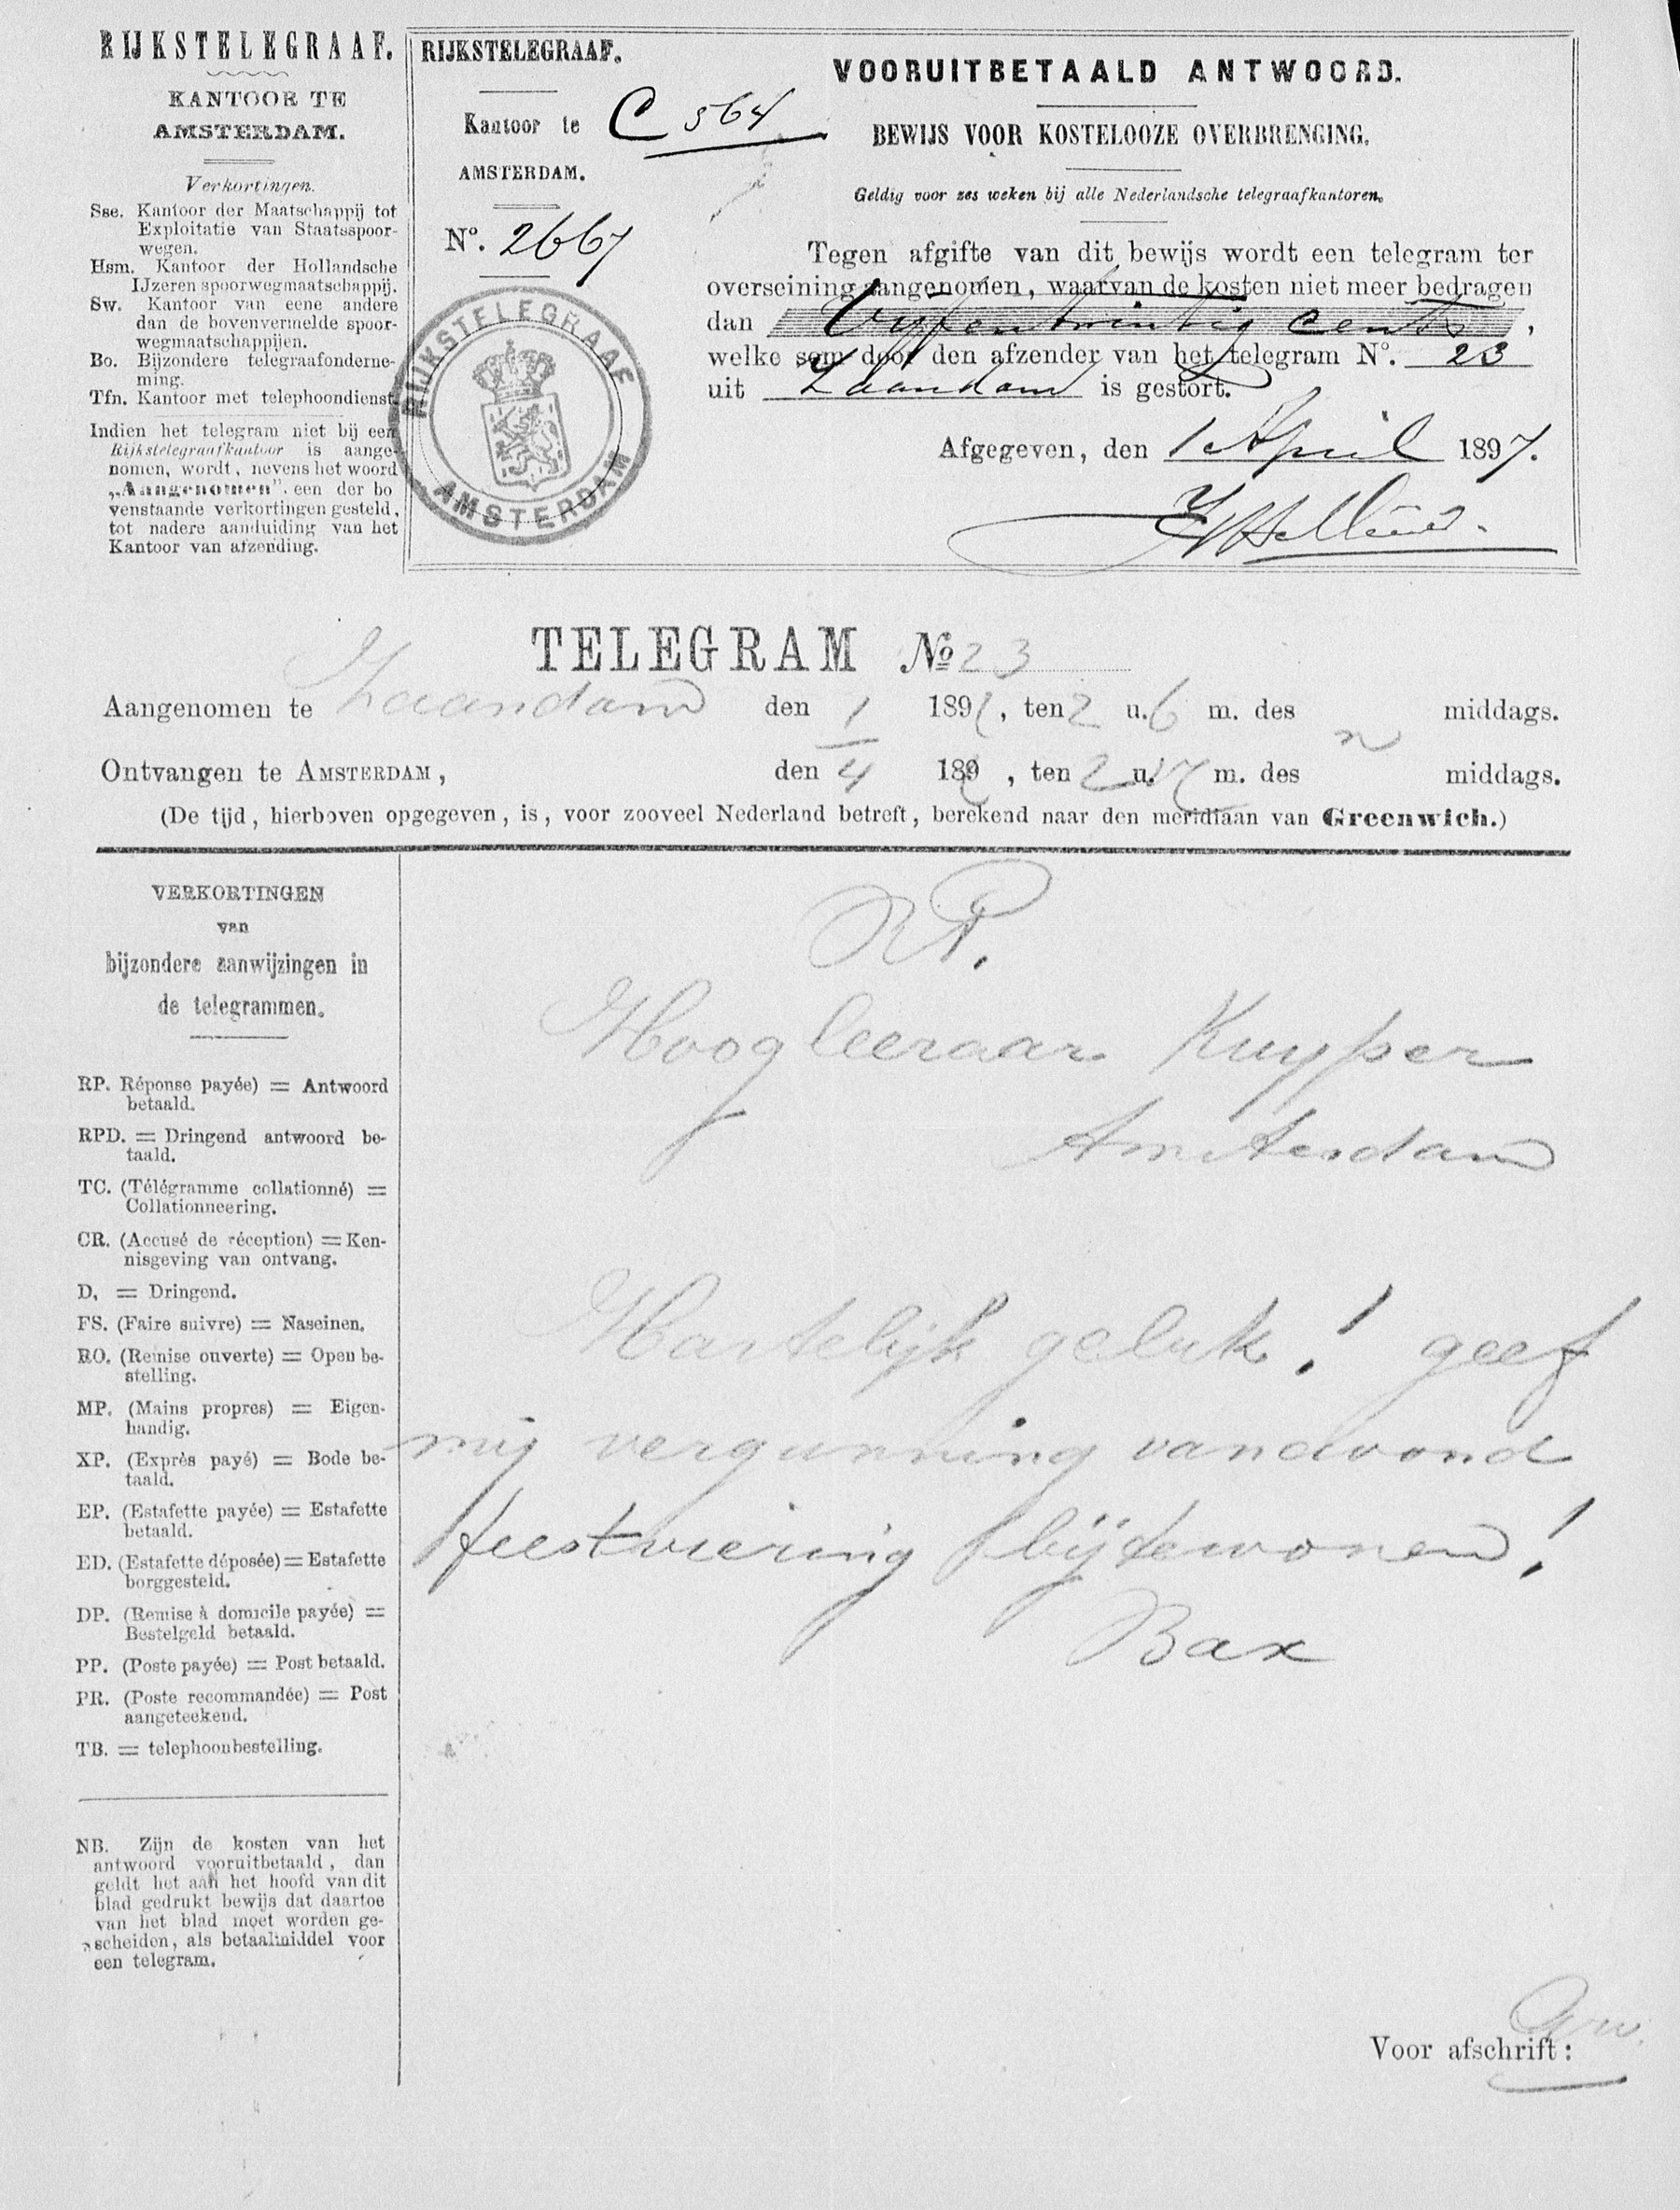 RIJKSTELEGRAAF.
KANTOOR TE
AMSTERDAM.
Verkortingen.
Sse. Kantoor der Maatschappij tot
Exploitatie van Staatsspoor-
wegen.
Hsm. Kantoor der Hollandsche
IJzeren spoorwegmaatschappij.
Sw. Kantoor van eene andere
dan de bovenvermelde spoor-
wegmaatschappijen.
Bo. Bijzondere telegraafonderne-
ming.
Tfn. Kantoor met telephoondienst.
Indien het telegram niet bij een
Rijkstelegraafkantoor is aange-
nomen, wordt, nevens het woord
„Aangenomen". een der bo
venstaande verkortingen gesteld,
tot nadere aanduiding van het
Kantoor van afzending.
RIJKSTELEGRAAF.
Kantoor te C 564
AMSTERDAM.
No. 2667
RIJKSTELEGRAAF
AMSTERDAM
VOORUITBETAALD ANTWOORD.
BEWIJS VOOR KOSTELOOZE OVERBRENGING.
Geldig voor zes weken bij alle Nederlandsche telegraafkantoren.
Tegen afgifte van dit bewijs wordt een telegram ter
overseining aangenomen, waarvan de kosten niet meer bedragen
dan Vijfentwintig cents,
welke som door den afzender van het telegram No. 23
uit Zaandam is gestort.
Afgegeven, den 1 April 1897.
TELEGRAM No 23
Aangenomen te Zaandam den 1 189, ten 2 u. 6 m. des n middags.
Ontvangen te AMSTERDAM, den 4 189, ten 2 u. 17 m. des middags.
(De tijd, hierboven opgegeven, is, voor zooveel Nederland betreft, berekend naar den meridiaan van Greenwich.)
VERKORTINGEN
van
bijzondere aanwijzingen in
de telegrammen.
RP. Réponse payée) = Antwoord
betaald.
RPD. = Dringend antwoord be-
taald.
TC. (Télégramme collationné) =
Collationneering.
CR. (Accusé de réception) = Ken-
nisgeving van ontvang.
D, = Dringend.
FS. (Faire suivre) = Naseinen.
RO. (Remise ouverte) = Open be-
stelling.
MP. (Mains propres) = Eigen-
handig.
XP. (Exprès payé) = Bode be-
taald.
EP. (Estafette payée) = Estafette
betaald.
ED. (Estafette déposée) = Estafette
borggesteld.
DP. (Remise à domicile payée) =
Bestelgeld betaald.
PP. (Poste payée) = Post betaald.
PR. (Poste recommandée) = Post
aangeteekend.
TB. = telephoonbestelling.
NB. Zijn de kosten van het
antwoord vooruitbetaald, dan
geldt het aan het hoofd van dit
blad gedrukt bewijs dat daartoe
van het blad moet worden ge-
scheiden, als betaalmiddel voor
een telegram.
RP.
Hoogleeraar Kuyper
Amsterdam
Hartelijk geluk! geef
mij vergunning vanavond
feestviering bijtewonen!
Bax
Voor afschrift: